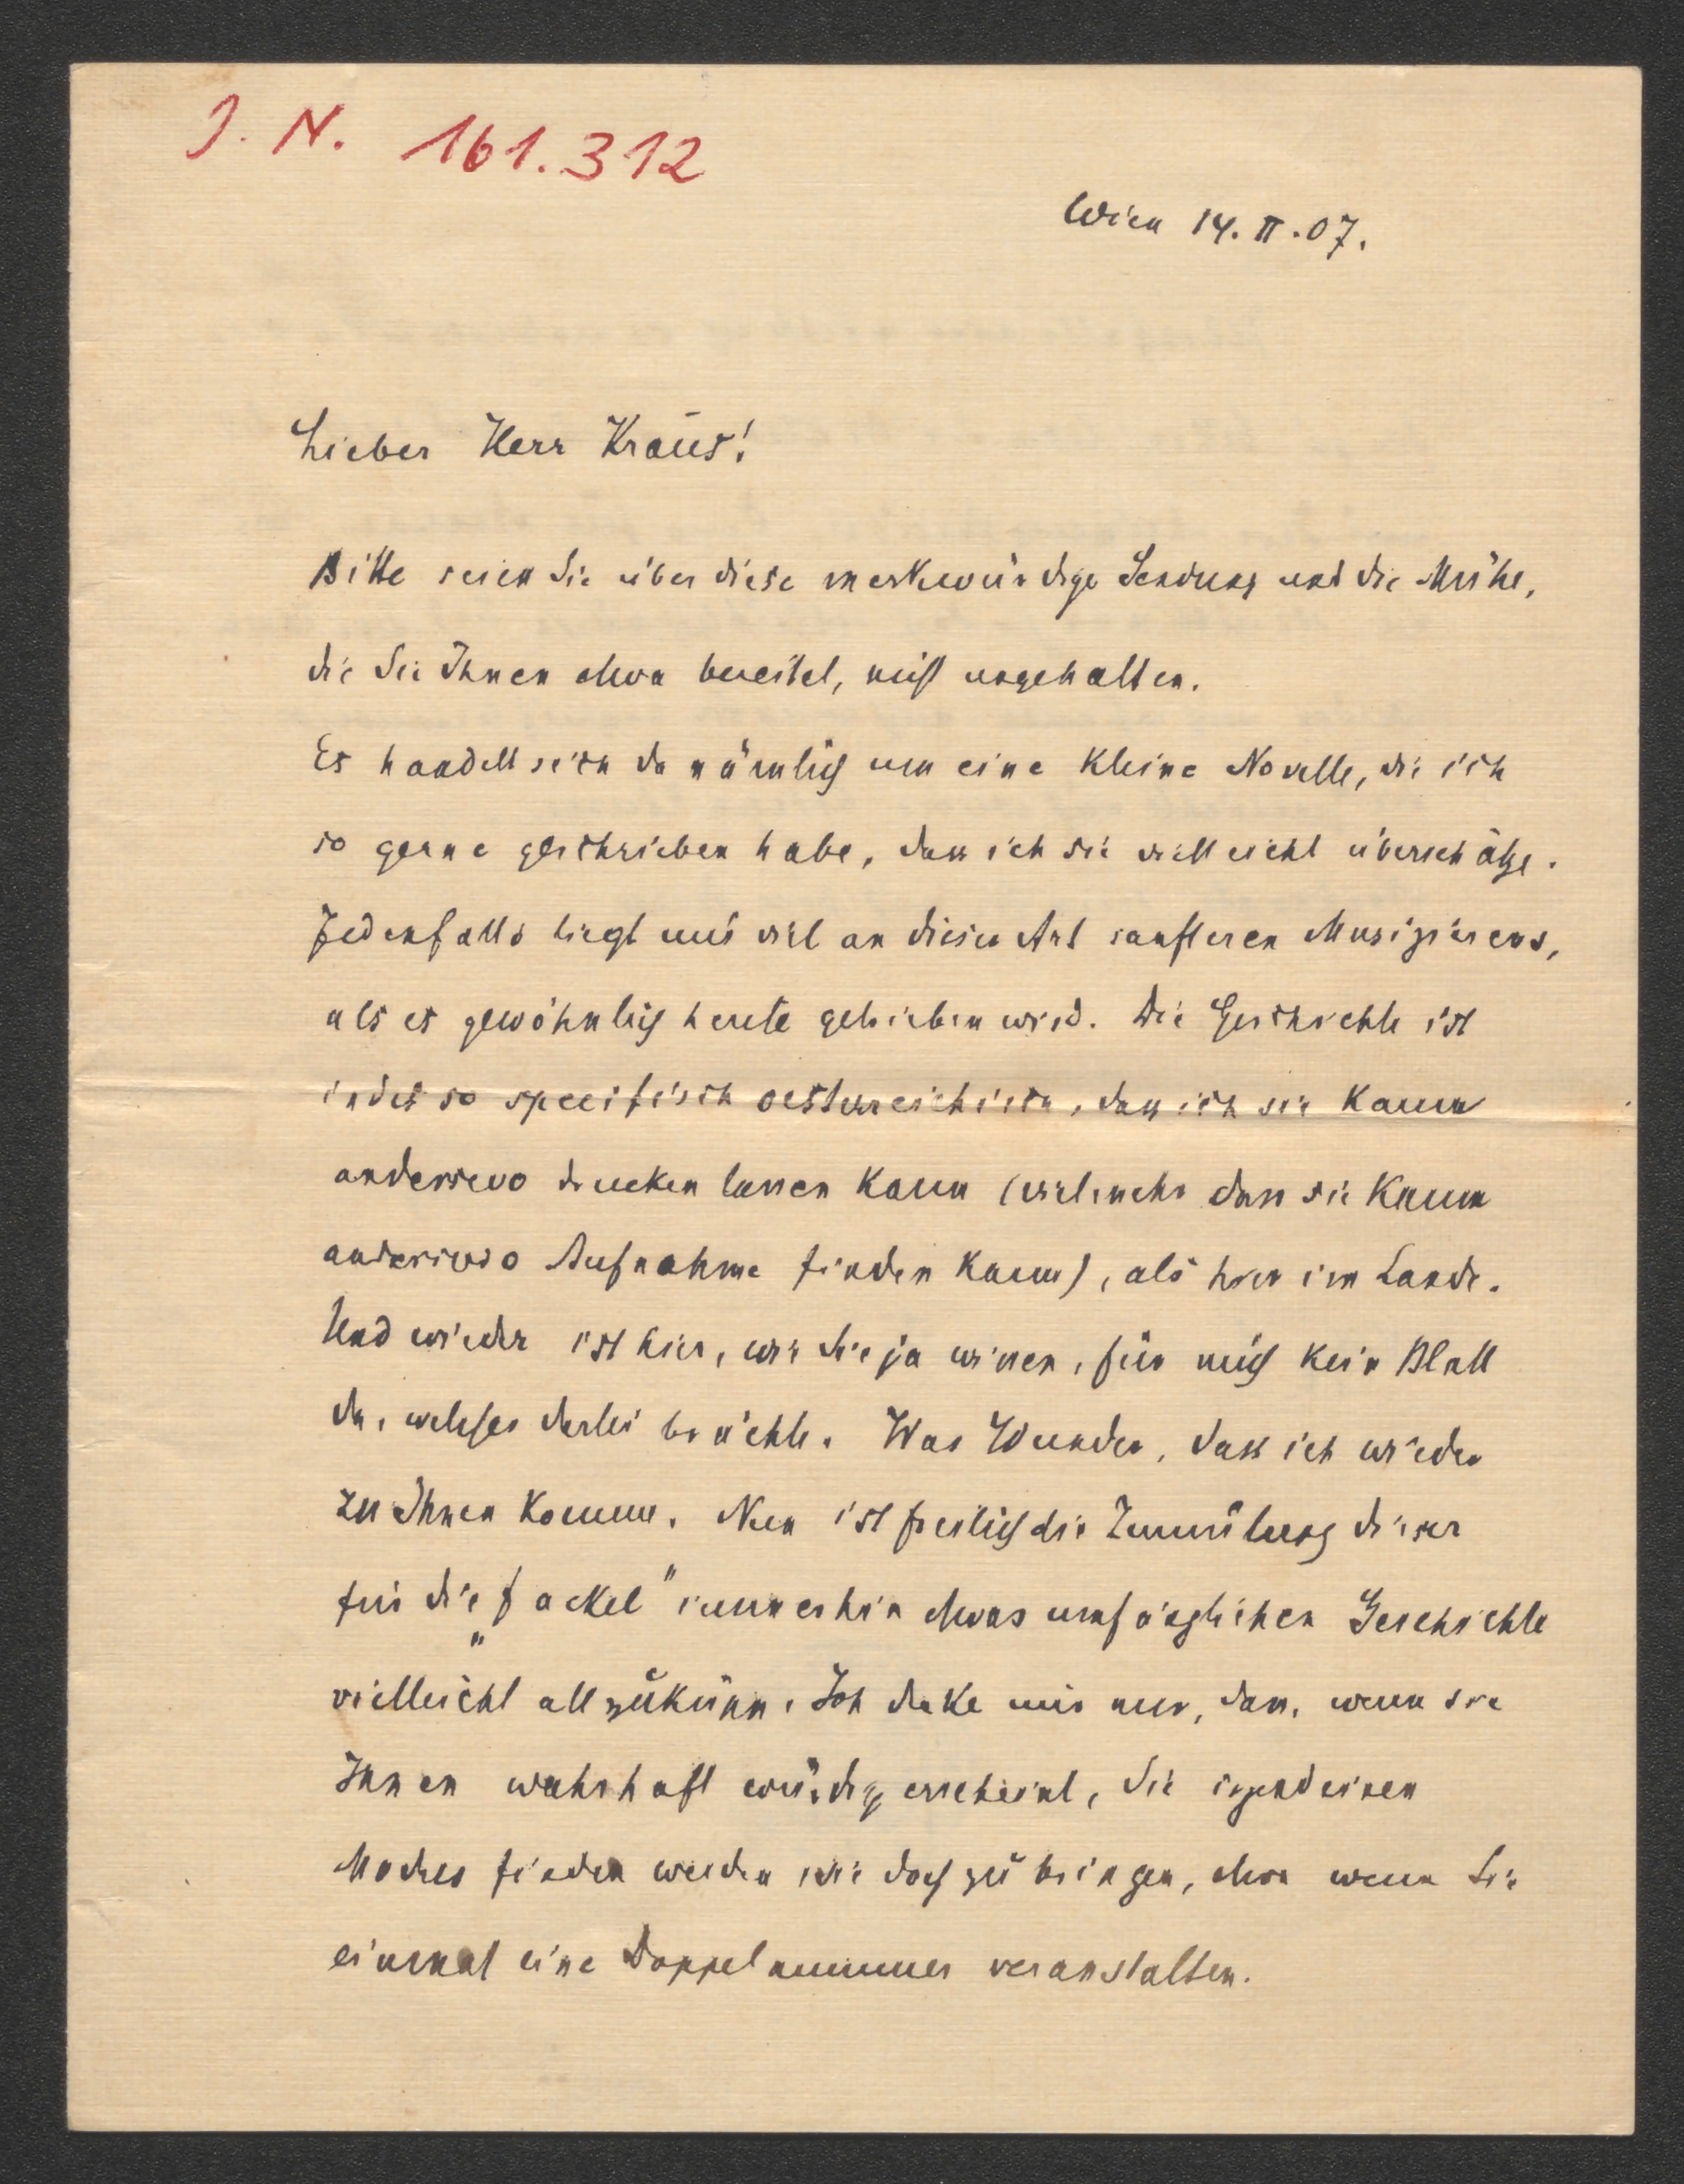 J. N. 161.312
Wien 14. II. 07.
Lieber Herr Kraus!
Bitte seien Sie über diese merkwürdige Sendung und die Mühe,
die Sie Ihnen etwa bereitet, nicht ungehalten.
Es handelt sich da nämlich um eine kleine Novelle, die ich
so gerne geschrieben habe, dass ich sie vielleicht überschätze.
Jedenfalls liegt mir viel an dieser Art sanfteren Musizierens,
als es gewöhnlich heute getrieben wird. Die Geschichte ist
indes so specifisch oesterreichisch, dass ich sie kaum
anderswo drucken lassen kann (vielmehr dass sie kaum
anderswo Aufnahme finden kann), als hier im Lande.
Und wieder ist hier, wie Sie ja wissen, für mich kein Blatt
da, welches derlei brächte. Was Wunder, dass ich wieder
zu Ihnen komme. Nun ist freilich die Zumutung dieser
für die „Fackel“ immerhin etwas umfänglichen Geschichte
vielleicht allzukühn. Ich denke mir nur, dass, wenn sie
Ihnen wahrhaft würdig erscheint, Sie irgendeinen
Modus finden werden sie doch zu bringen, etwa wenn Sie
einmal eine Doppelnummer veranstalten.